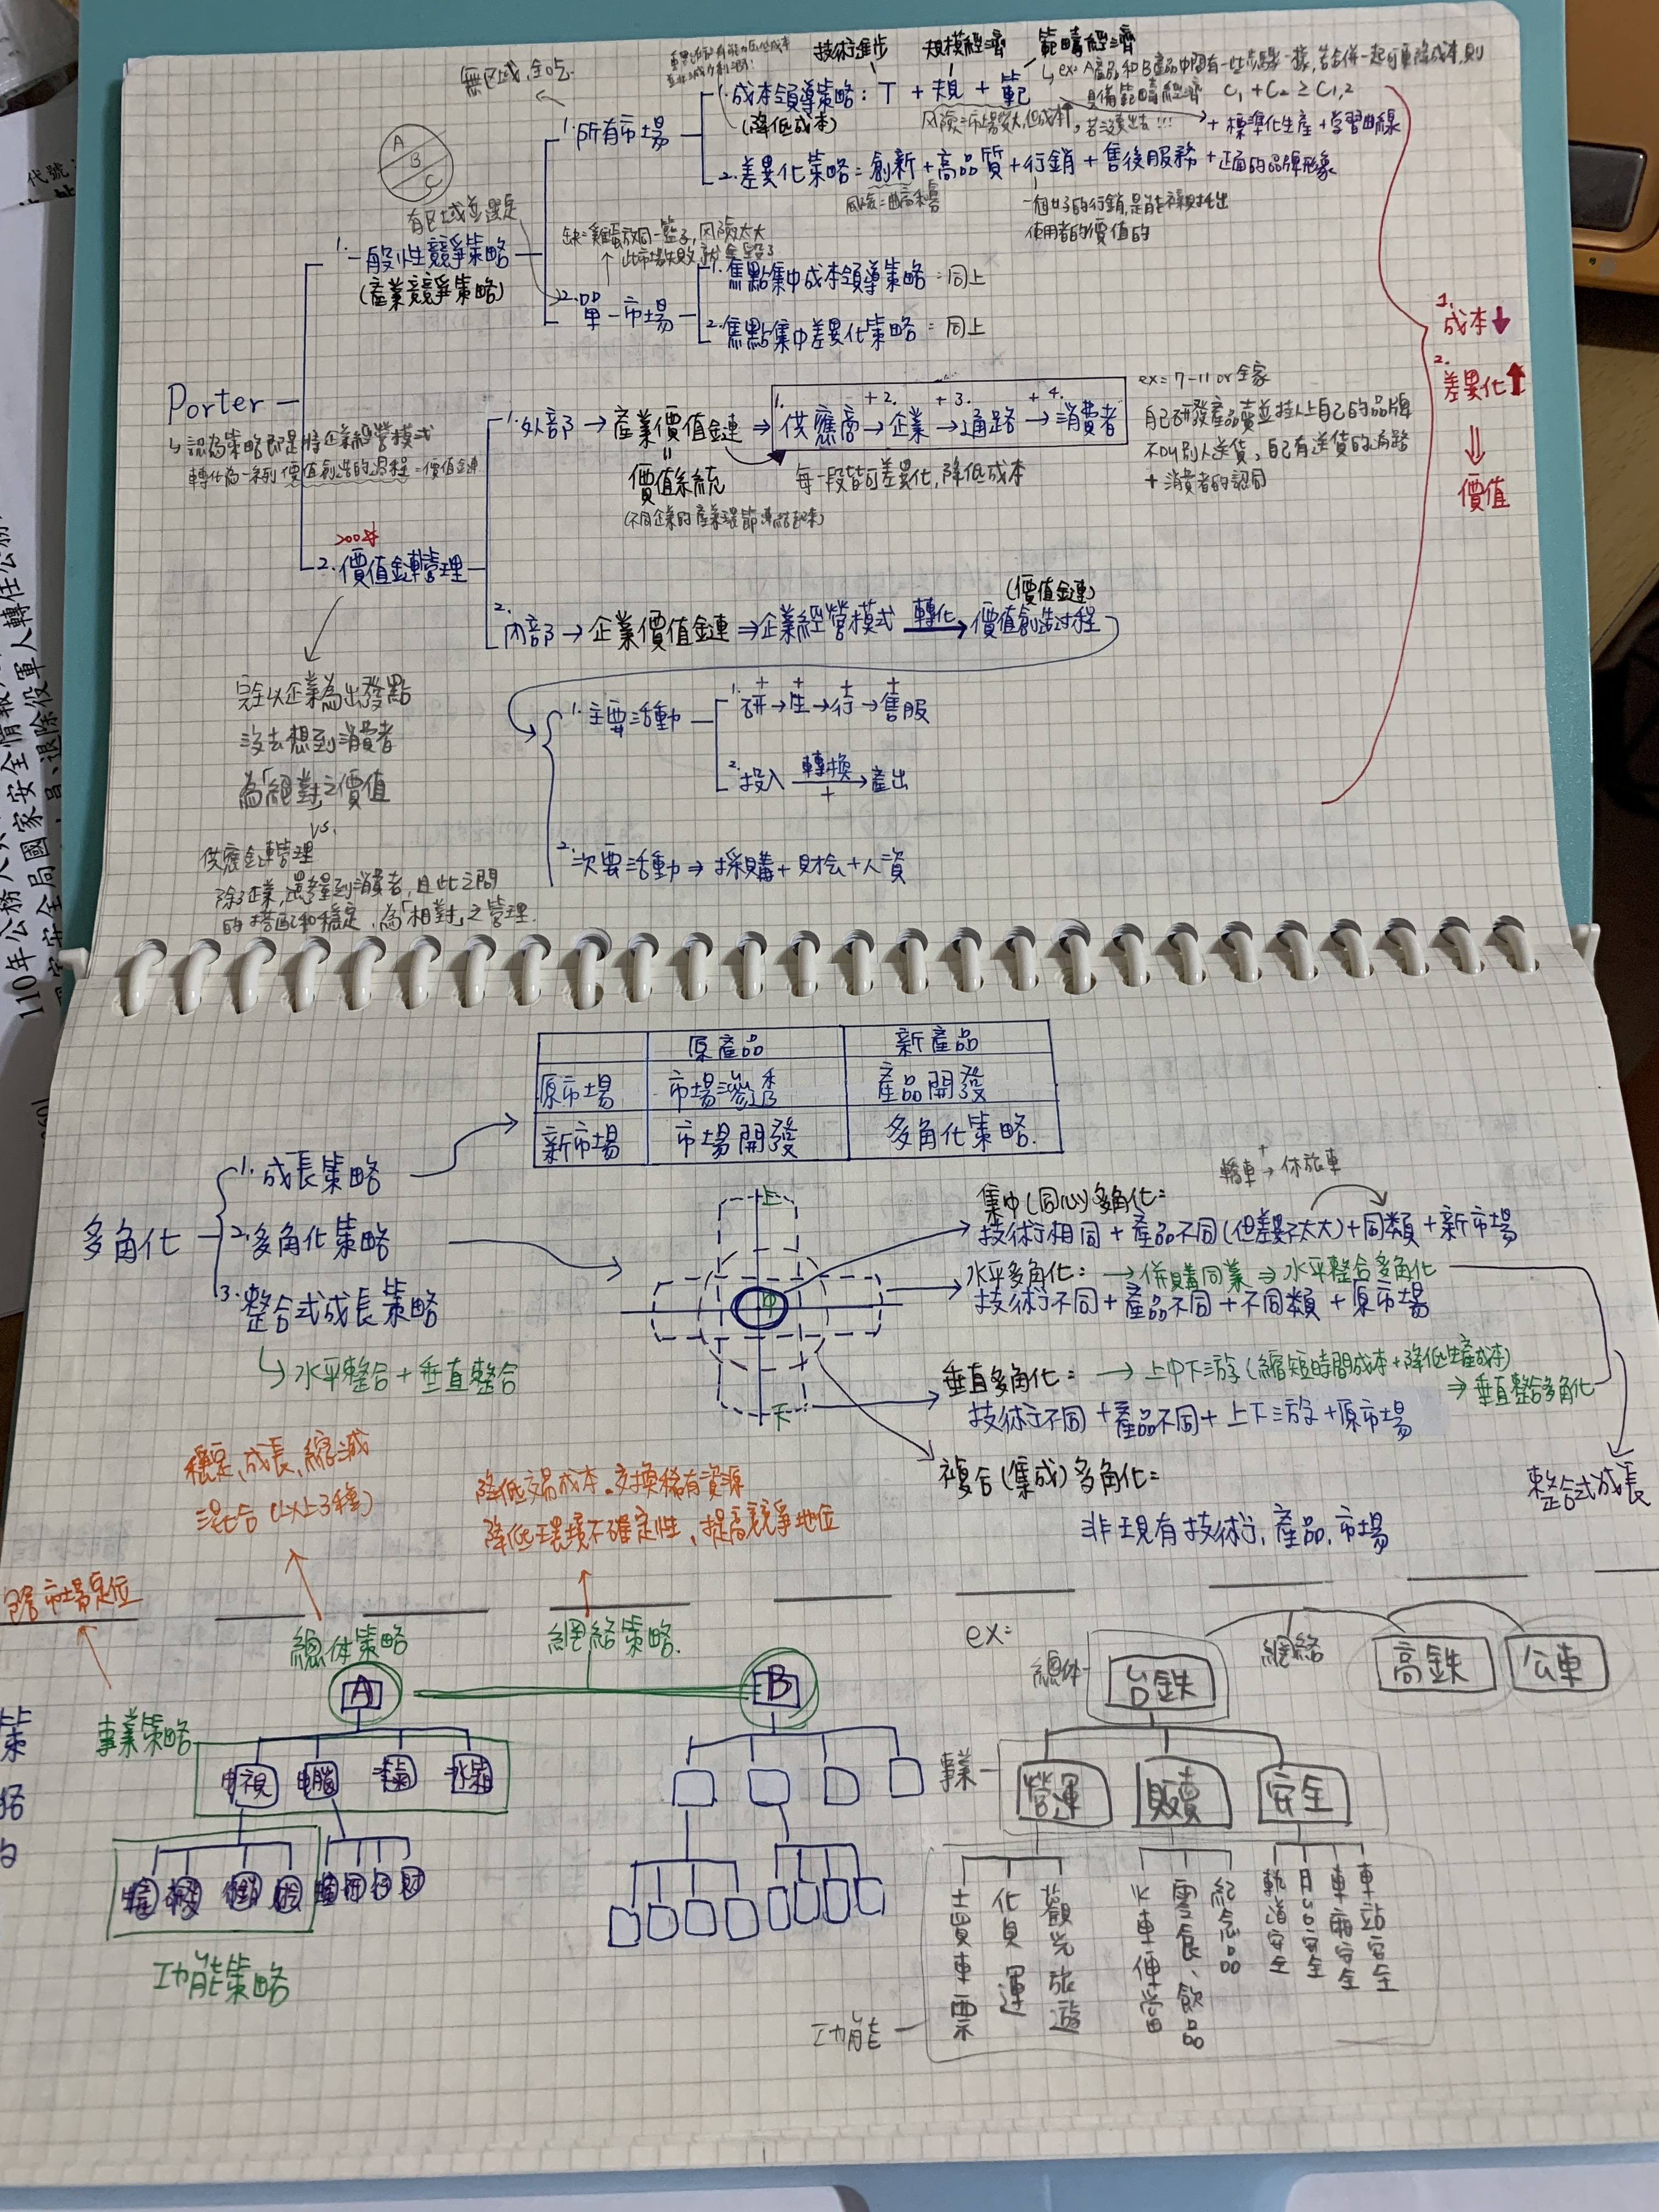 無區域,全吃
技術進步 規模經濟 範疇經濟
1.成本領導策略：T + 規 + 範
(降低成本)
ex: A產品和B產品中間有一些步驟一樣,若合併一起可再降成本,則
具備範疇經濟 C₁ + C₂ ≥ C₁,₂
+ 標準化生產 + 学習曲線
1.所有市場
2.差異化策略=創新+高品質+行銷+售後服務+正面的品牌形象
風險=曲高和寡
一個好的行銷,是能襯托出
使用者的價值的
A
B
C
有區域並選定
1.一般性競爭策略
(產業競爭策略)
缺=雞蛋放同一籃子,风險太大
此市場失敗,就全毀了
2.單一市場
1.焦點集中成本領導策略=同上
2.焦點集中差異化策略=同上
1.成本↓
2.差異化↑
⇓
價值
Porter
↳認為策略即是將企業經營模式
轉化為一系列價值創造的過程=價值鏈
1.外部→產業價值鏈⇒
1.供應商→企業→通路→消費者
+2. +3. +4.
價值系統
(不同企業的產業環節連結起來)
每一段皆可差異化,降低成本
ex=7-11 or 全家
自己研發產品賣並掛上自己的品牌
不叫別人送貨,自己有送貨的通路
+消費者的認同
2.價值鏈管理
2.內部→企業價值鏈⇒企業經營模式 轉化→價值創造过程
(價值鏈)
完全以企業為出發點
沒去想到消費者
為「絕對」之價值
vs.
供應鏈管理
除了企業,還考量到消費者,且此之間
的搭配和穩定,為「相對」之管理.
1.主要活動
1.研→生→行→售服
2.投入 轉換→產出
+
2.次要活動⇒採購+財会+人資
原產品 新產品
原市場 市場滲透 產品開發
新市場 市場開發 多角化策略.
多角化
1.成長策略
2.多角化策略
3.整合式成長策略
↳水平整合+垂直整合
上
中
下
轎車→休旅車
集中(同心)多角化=
技術相同+產品不同(但差異不太大)+同類+新市場
水平多角化:→併購同業⇒水平整合多角化
技術不同+產品不同+不同類+原市場
垂直多角化:→上中下游(縮短時間成本+降低生產成本)
⇒垂直整合多角化
技術不同+產品不同+上下游+原市場
複合(集成)多角化=
非現有技術,產品,市場
整合式成長
穩定,成長,縮減
混合(以上3種)
降低交易成本.交換稀有資源
降低環境不確定性,提高競爭地位
市場定位
總体策略
網絡策略.
A
B
事業策略
電視 電腦 冰箱
功能策略
ex=
總体
台鉄
網絡
高鉄
公車
事業
營運
販賣
安全
功能
買車票
貨運
觀光旅遊
火車便當
零食、飲品
紀念品
軌道安全
月台安全
車廂安全
車站安全
110年公務人
安全局國家安全情報
員、退除役軍人轉任公務
代號
策
略